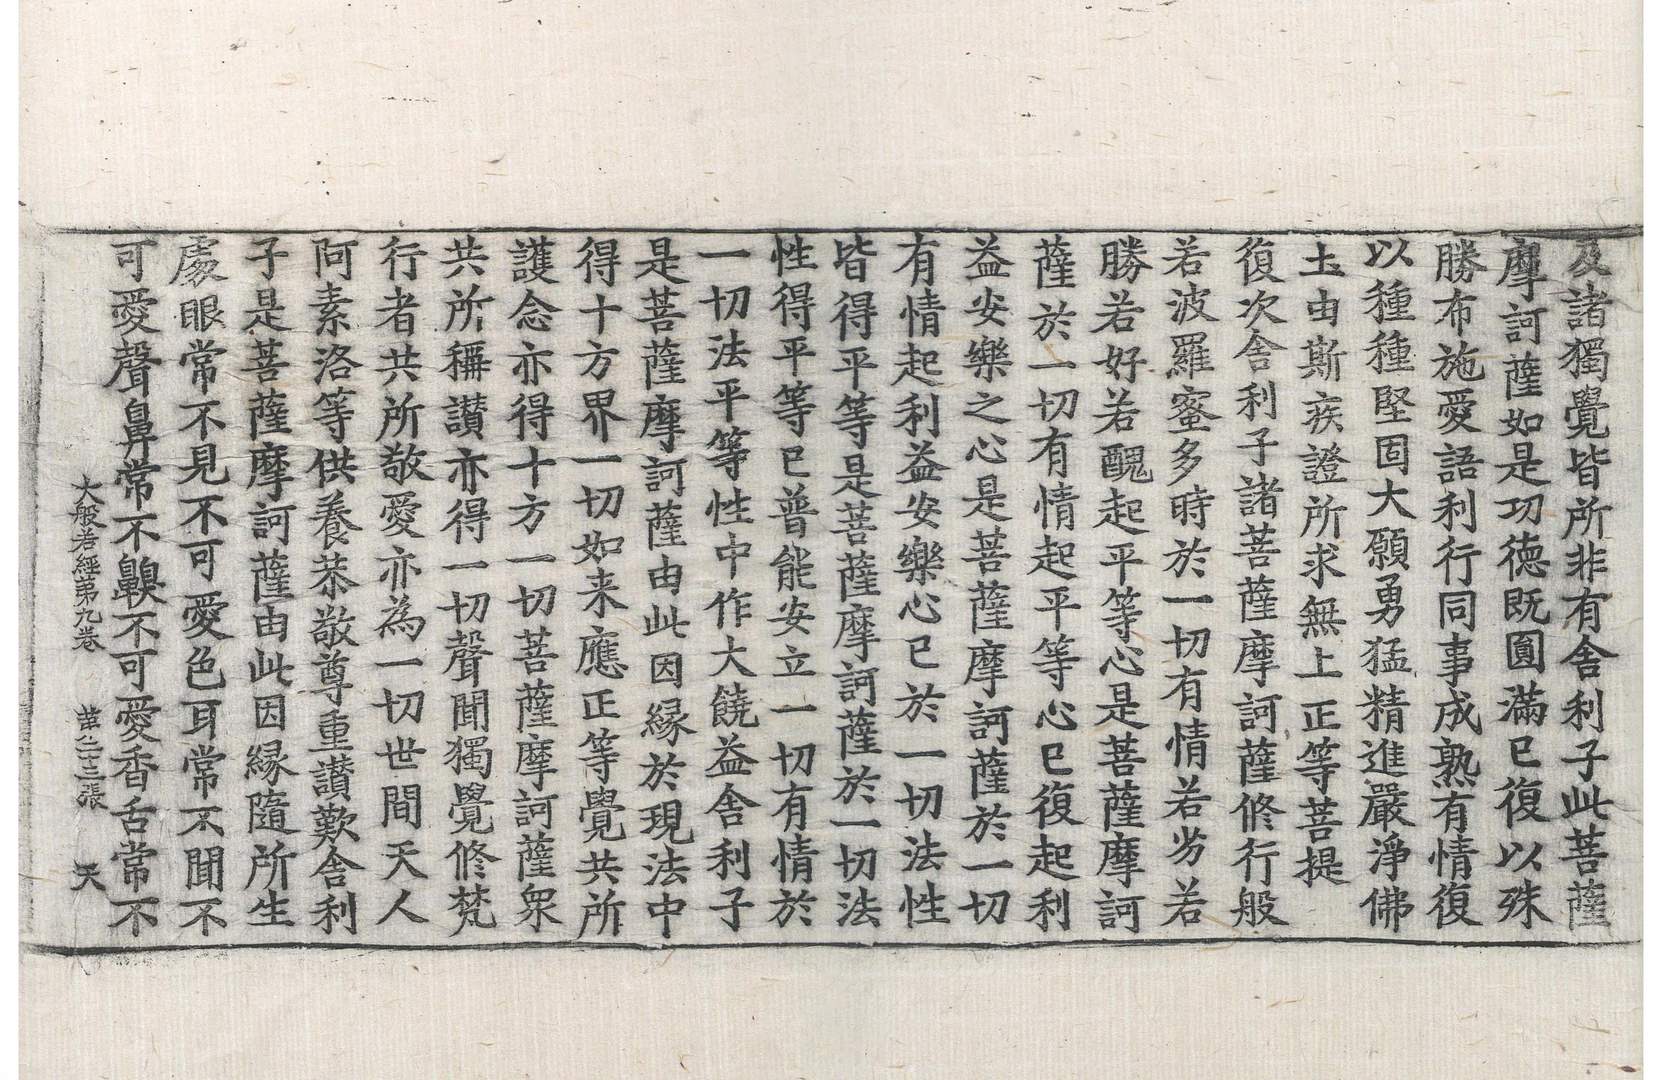 及諸獨覺皆所非有舍利子此菩薩
摩訶薩如是功德既圓滿已復以殊
勝布施愛語利行同事成熟有情復
以種種堅固大願勇猛精進嚴淨佛
土由斯疾證所求無上正等菩提
復次舍利子諸菩薩摩訶薩修行般
若波羅蜜多時於一切有情若劣若
勝若好若醜起平等心是菩薩摩訶
薩於一切有情起平等心已復起利
益安樂之心是菩薩摩訶薩於一切
有情起利益安樂心已於一切法性
皆得平等是菩薩摩訶薩於一切法
性得平等已普能安立一切有情於
一切法平等性中作大饒益舍利子
是菩薩摩訶薩由此因緣於現法中
得十方界一切如来應正等覺共所
護念亦得十方一切菩薩摩訶薩眾
共所稱讃亦得一切聲聞獨覺修梵
行者共所敬愛亦為一切世間天人
阿素洛等供養恭敬尊重讃歎舍利
子是菩薩摩訶薩由此因緣隨所生
處眼常不見不可愛色耳常不聞不
可愛聲鼻常不齅不可愛香舌常不
大般若經第九卷 第二十三張 天